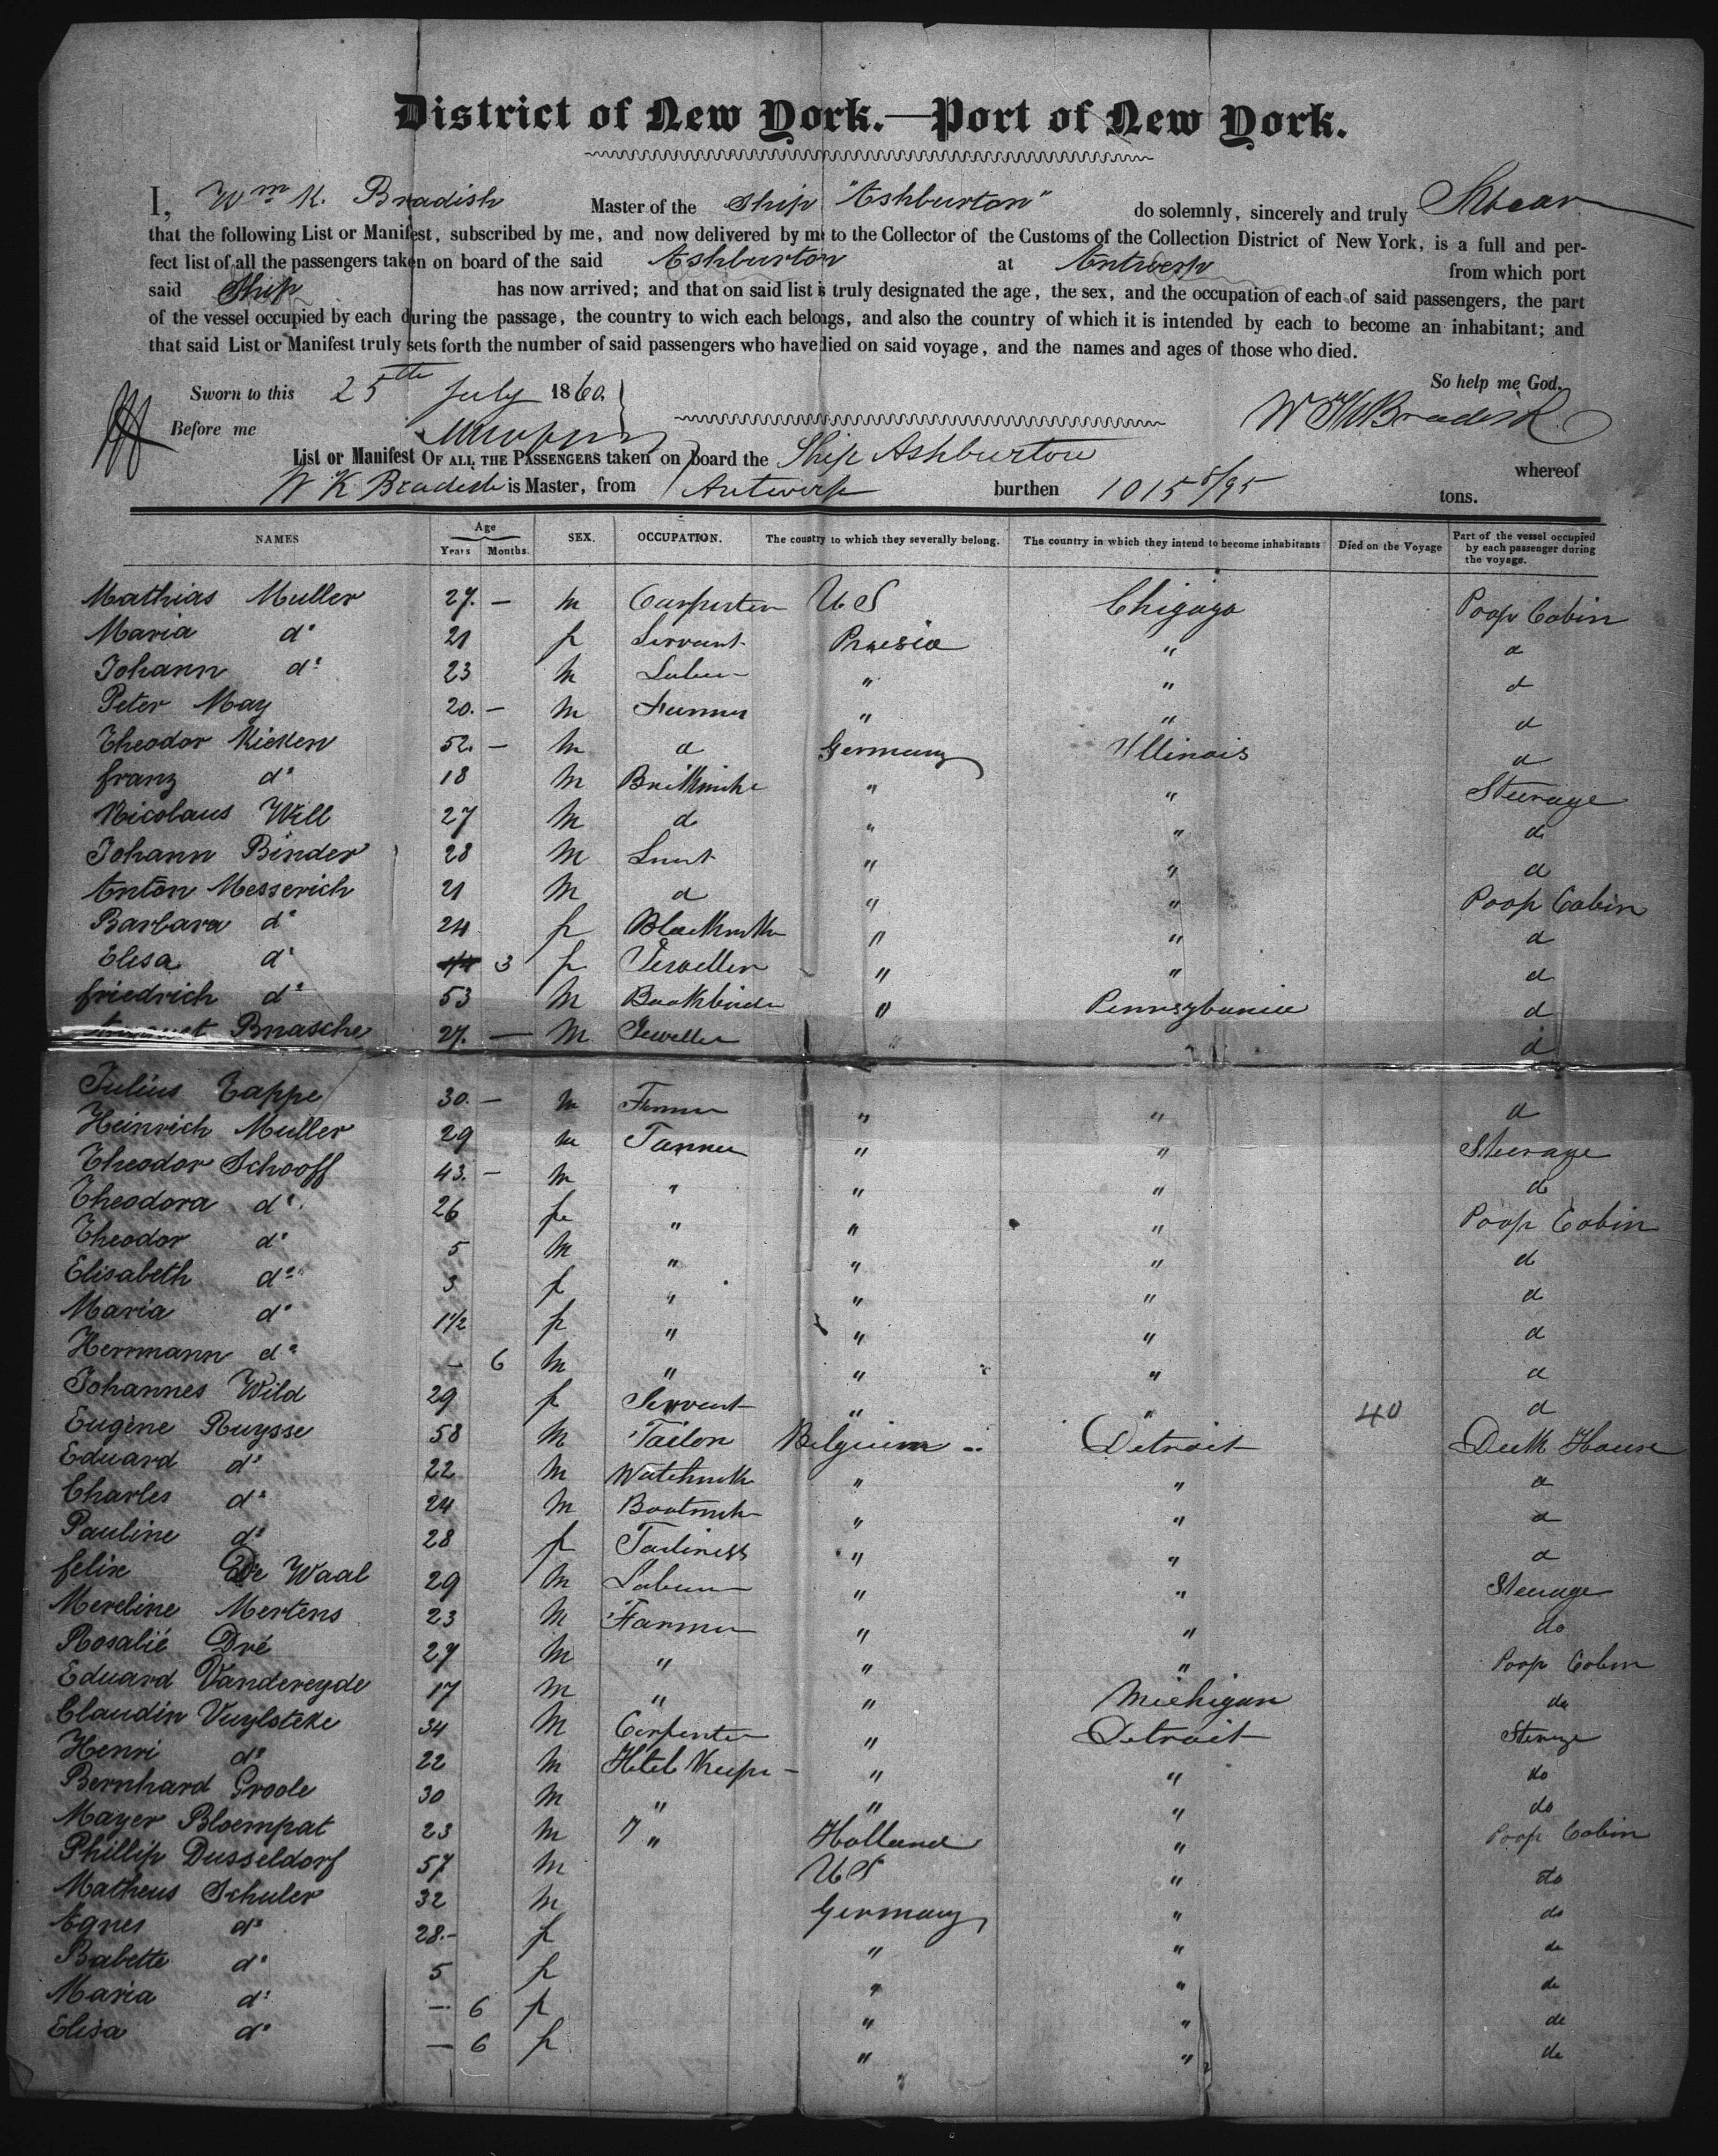 District of New York.—Port of New York.
I, Wm K. Bradish Master of the Ship "Ashburton" do solemnly, sincerely and truly Swear
that the following List or Manifest, subscribed by me, and now delivered by me to the Collector of the Customs of the Collection District of New York, is a full and per-
fect list of all the passengers taken on board of the said Ashburton at Antwerp from which port
said Ship has now arrived; and that on said list is truly designated the age, the sex, and the occupation of each of said passengers, the part
of the vessel occupied by each during the passage, the country to wich each belongs, and also the country of which it is intended by each to become an inhabitant; and
that said List or Manifest truly sets forth the number of said passengers who have died on said voyage, and the names and ages of those who died.
Sworn to this 25th July 1860. So help me God.
Before me W K Bradish
List or Manifest OF ALL THE PASSENGERS taken on board the Ship Ashburton whereof
W K Bradish is Master, from Antwerp burthen 1015 8/95 tons.
NAMES Age Years Months. SEX. OCCUPATION. The country to which they severally belong. The country in which they intend to become inhabitants Died on the Voyage Part of the vessel occupied by each passenger during the voyage.
Mathias Muller 27. — m Carpenter U S Chigago Poop Cabin
Maria do 21 f Servant Prussia " d
Johann do 23 m Labor " " d
Peter May 20. — m Farmer " " d
Theodor Kieken 52. — m d Germany Illinois d
franz do 18 m " " Steerage
Nicolaus Will 27 m d " " d
Johann Binder 28 m " " d
Anton Messerich 21 m d " " Poop Cabin
Barbara do 24 f " " d
Elisa do 3 f Jeweller " " d
friedrich do 53 m Bookbinder " Pennsylvania d
Brasche 27. — m Jeweller " " d
Julius Tappe 30. — m Farmer " " d
Heinrich Muller 29 m Tanner " " Steerage
Theodor Schooff 43. — m " " " do
Theodora do 26 fe " " " Poop Cabin
Theodor do 5 m " " " d
Elisabeth do 3 f " " " d
Maria do 1 1/2 f " " " d
Herrmann do — 6 m " " " d
Johannes Wild 29 f Servant " " d
Eugène Ruysse 58 m Tailor Belgium Detroit 40 Deck House
Eduard do 22 m Watchmk " " d
Charles do 24 m Bootmk " " d
Pauline do 28 f Tailiness " " d
felix De Waal 29 m Labour " " Steerage
Mereline Mertens 23 m Farmer " " do
Rosalié Dré 27 m " " " Poop Cabin
Eduard Vandereyde 17 m " " Michigan do
Claudin Vuylsteke 34 m Carpenter " Detroit Sterage
Henri do 22 m Hotel Keeper " " do
Bernhard Groole 30 m " " " do
Mayer Bloempat 23 m " Holland " Poop Cabin
Phillip Dusseldorf 57 m U S " do
Matheus Schuler 32 m Germany " do
Agnes do 28.- f " " do
Babette do 5 f " " do
Maria do — 6 f " " do
Elisa do — 6 f " " do